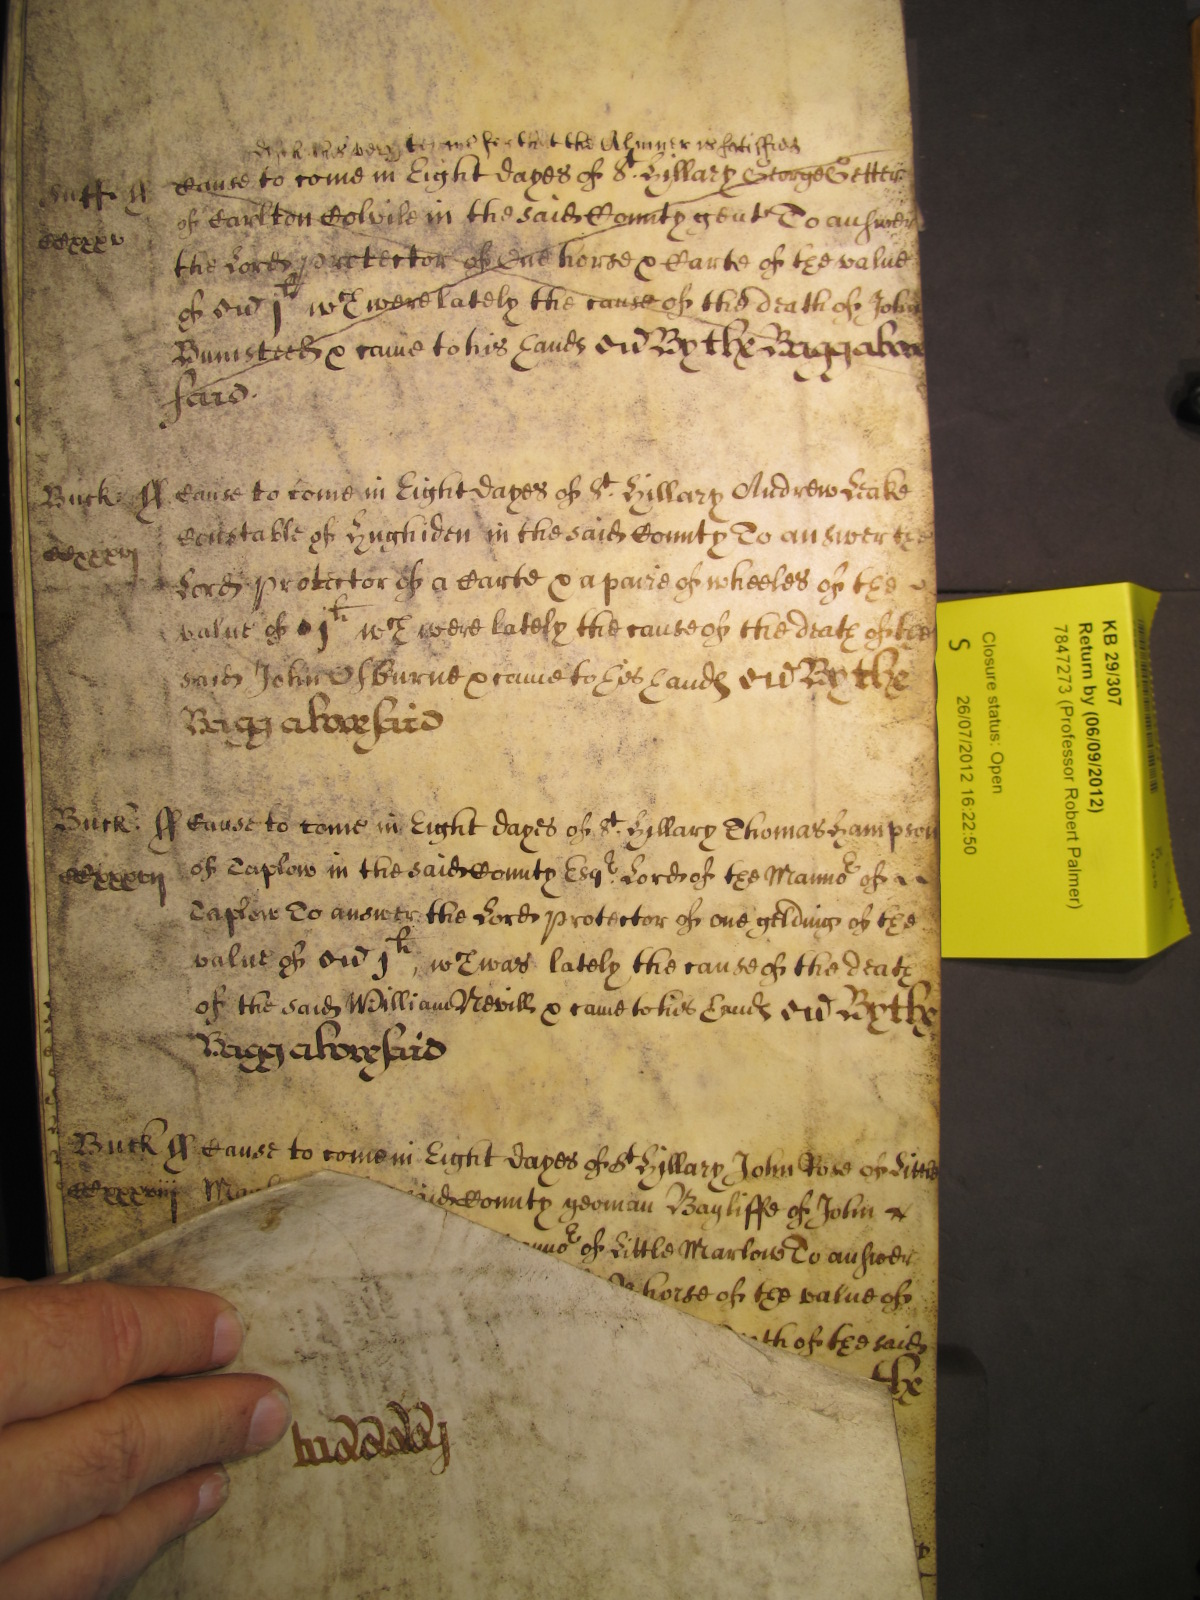 the Almner is satisfied
Suff ss Cause to come in Eight dayes of St. Hillary George Getter
of Carlton Colvile in the said County gent To answer
the Lord Protector of One horse & Carte of the value
of wch were lately the cause of the death of John
Bumsteed & came to his hands By the Bagg above
said.
Buck: ss Cause to come in Eight dayes of St. Hillary Andrew Leake
Constable of Hughiden in the said County To answer the
ccxxxvj
Lord Protector of a Carte & a paire of wheeles of the
value of wch were lately the cause of the death of the
said John Osburne & came to his hands By the
Bagg abovesaid
Buck: ss Cause to come in Eight dayes of St. Hillary Thomas Hampson
ccxxxvij
of Taplow in the said County Esqr. Lord of the Mannor of
Taplow To answer the Lord Protector of one gelding of the
value of wch was lately the cause of the death
of the said William Nevill & came to his hands By the
Bagg abovesaid
Buck ss Cause to come in Eight dayes of St Hillary John Rose of Little
ccxxxviij
said County yeoman Bayliffe of John
of Little Marlow To answer
horse of the value of
of the said
the
KB 29/307
Return by (06/09/2012)
7847273 (Professor Robert Palmer)
Closure status: Open
S 26/07/2012 16:22:50